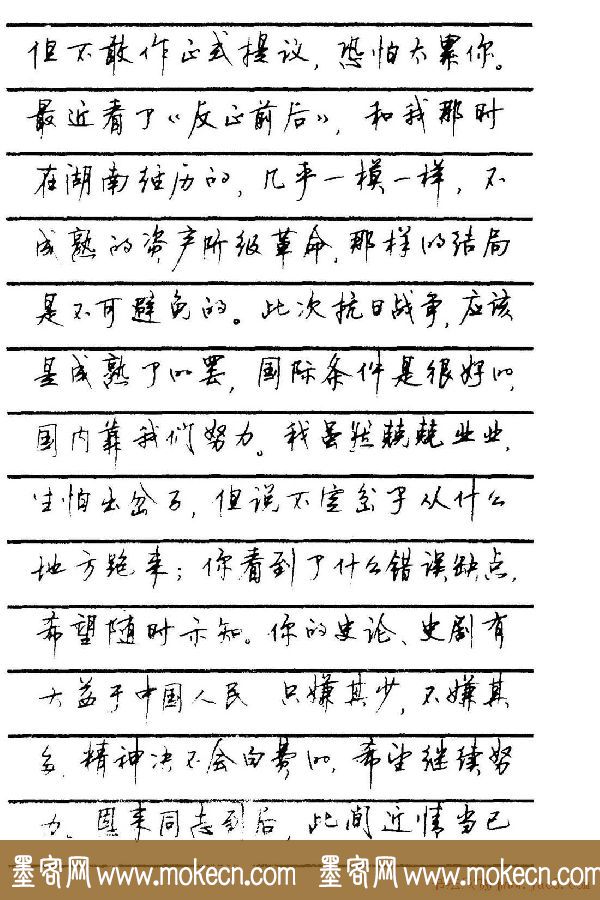 但不敢作正式提议，恐怕太累你。
最近看了《反正前后》，和我那时
在湖南经历的，几乎一模一样，不
成熟的资产阶级革命，那样的结局
是不可避免的。此次抗日战争，应该
是成熟了的罢，国际条件是很好的，
国内靠我们努力。我虽然兢兢业业，
生怕出岔子，但说不定岔子从什么
地方跑来；你看到了什么错误缺点，
希望随时示知。你的史论、史剧有
大益于中国人民 只嫌其少，不嫌其
多，精神决不会白费的，希望继续努
力。恩来同志到后，此间近情当已
墨客网 www.mokecn.com 墨客网 www.mokecn.com